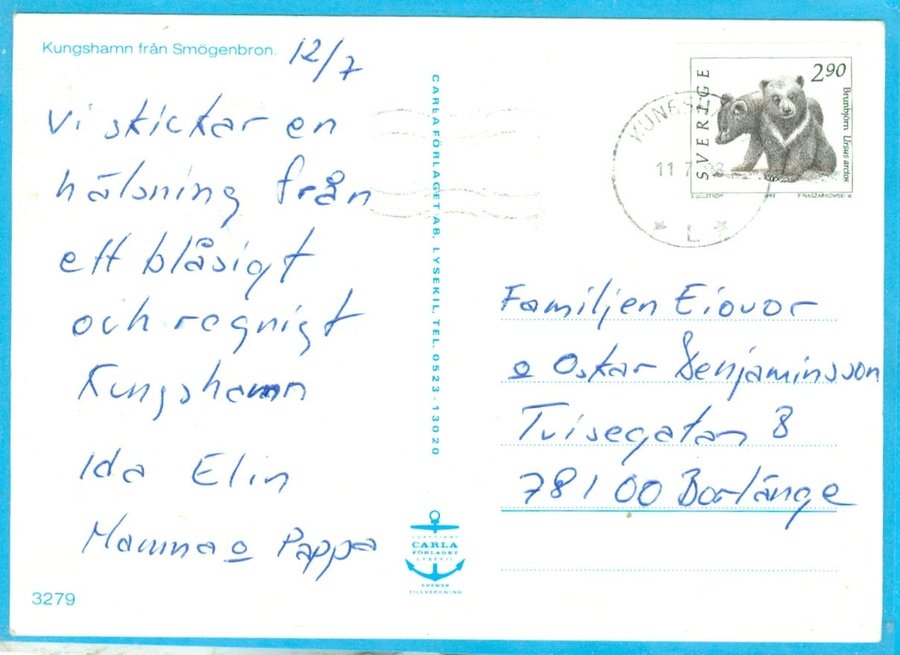 Kungshamn från Smögenbron.
12/7
Vi skickar en
hälsning från
ett blåsigt
och regnigt
Kungshamn
Ida Elin
Mamma o Pappa
3279
CARLA FÖRLAGET AB, LYSEKIL, TEL. 0523-13020
COPYRIGHT
CARLA
FÖRLAGET
LYSEKIL
SVENSK
TILLVERKNING
SVERIGE
2.90
Brunbjörn Ursus arctos
1993
11 7
* L *
Familjen Eiovor
o Oskar Benjaminsson
Tvisegatan 8
781 00 Borlänge